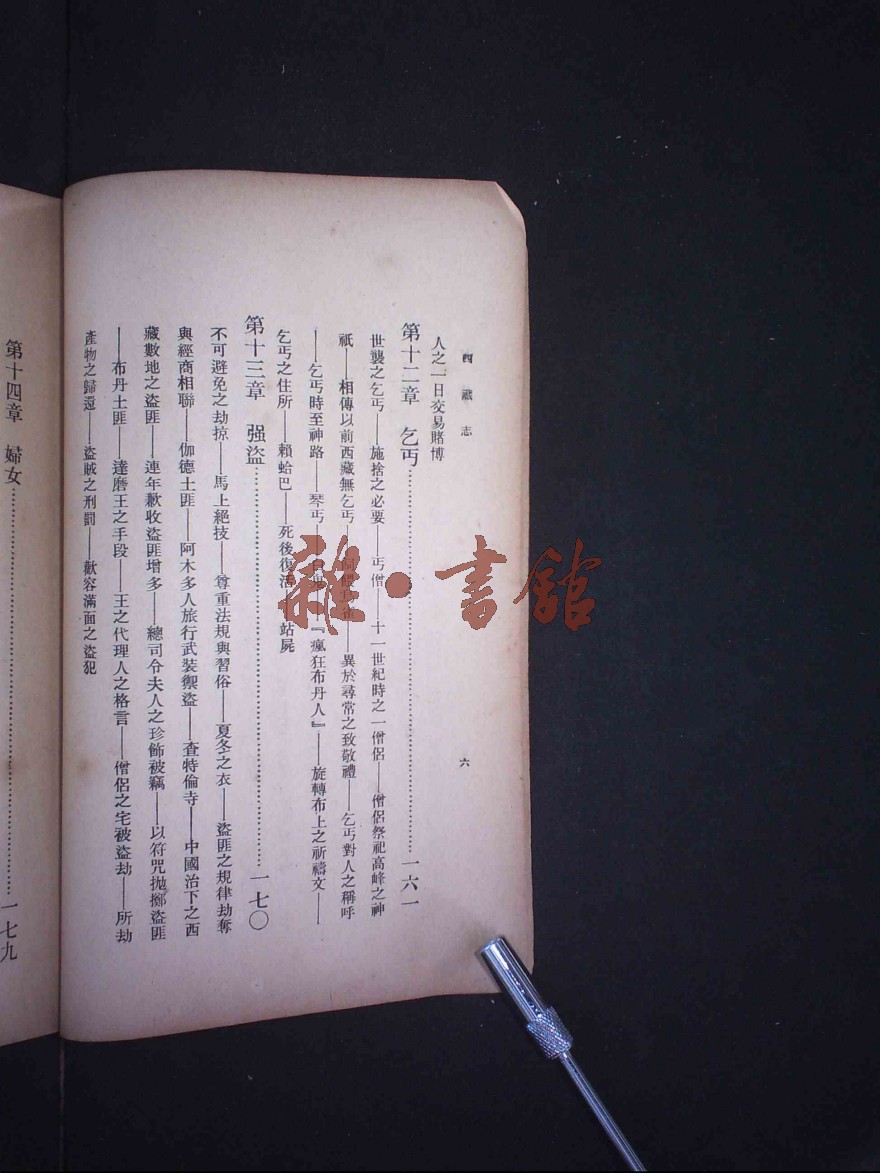 西藏志
六
人之一日交易賭博
第十二章 乞丐……一六一
世襲之乞丐——施捨之必要——丐僧——十一世紀時之一僧侶——僧侶祭祀高峰之神
祇——相傳以前西藏無乞丐——異於尋常之致敬禮——乞丐對人之稱呼
——乞丐時至神路——琴丐——『瘋狂布丹人』——旋轉布上之祈禱文——
乞丐之住所——賴蛤巴——死後復活——站屍
第十三章 强盜……一七〇
不可避免之劫掠——馬上絕技——尊重法規與習俗——夏冬之衣——盜匪之規律劫奪
與經商相聯——伽德土匪——阿木多人旅行武裝禦盜——查特倫寺——中國治下之西
藏數地之盜匪——連年歉收盜匪增多——總司令夫人之珍飾被竊——以符咒拋擲盜匪
——布丹土匪——達磨王之手段——王之代理人之格言——僧侶之宅被盜劫——所劫
產物之歸還——盜賊之刑罰——歡容滿面之盜犯
第十四章 婦女……一七九
雜·書館